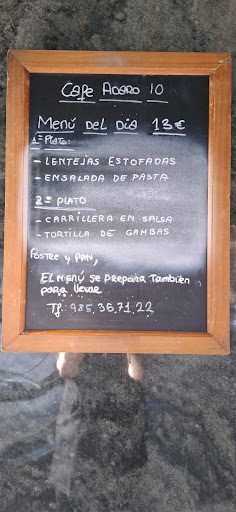 Cafe Adaro 10
Menú DEL Día 13€
1º Plato:
- LENTEJAS ESTOFADAS
- ENSALADA DE PASTA
2º PLATO
- CARRILLERA EN SALSA
- TORTILLA DE GAMBAS
POSTRE Y PAN,
EL MENÚ SE PREPARA También
para llevar
Tf: 985.36.71.22